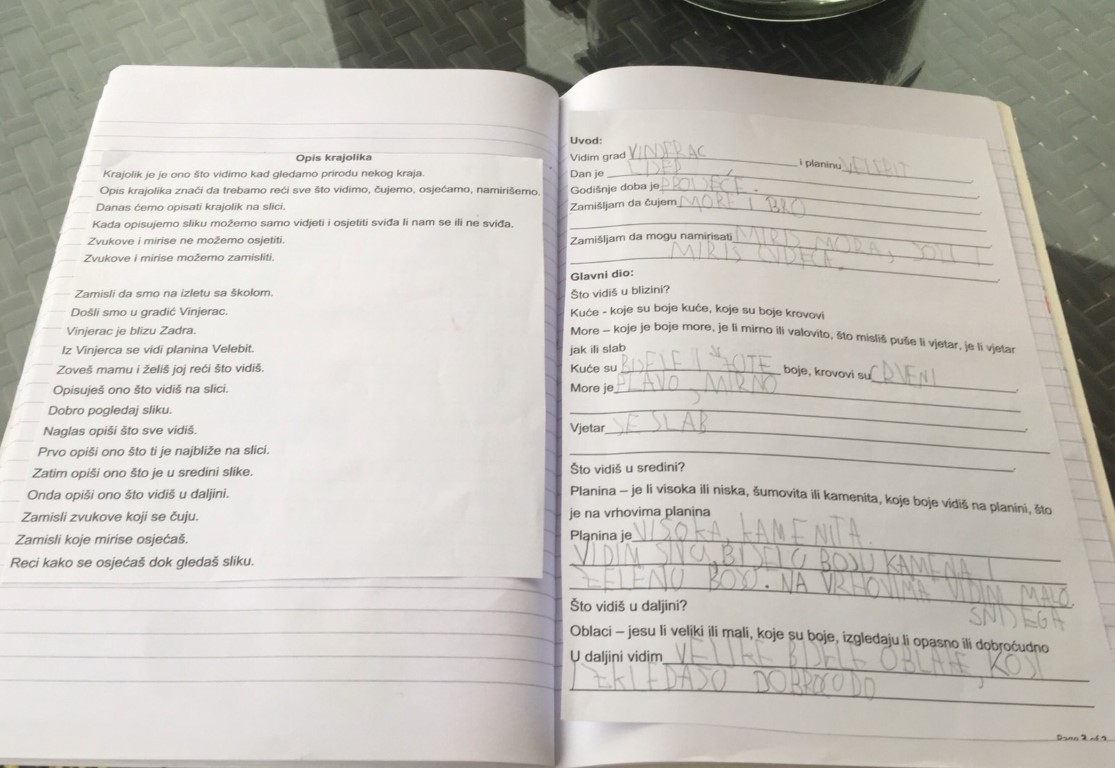 Opis krajolika
Krajolik je je ono što vidimo kad gledamo prirodu nekog kraja.
Opis krajolika znači da trebamo reći sve što vidimo, čujemo, osjećamo, namirišemo.
Danas ćemo opisati krajolik na slici.
Kada opisujemo sliku možemo samo vidjeti i osjetiti sviđa li nam se ili ne sviđa.
Zvukove i mirise ne možemo osjetiti.
Zvukove i mirise možemo zamisliti.
Zamisli da smo na izletu sa školom.
Došli smo u gradić Vinjerac.
Vinjerac je blizu Zadra.
Iz Vinjerca se vidi planina Velebit.
Zoveš mamu i želiš joj reći što vidiš.
Opisuješ ono što vidiš na slici.
Dobro pogledaj sliku.
Naglas opiši što sve vidiš.
Prvo opiši ono što ti je najbliže na slici.
Zatim opiši ono što je u sredini slike.
Onda opiši ono što vidiš u daljini.
Zamisli zvukove koji se čuju.
Zamisli koje mirise osjećaš.
Reci kako se osjećaš dok gledaš sliku.
Uvod:
Vidim grad VINJERAC i planinu VELEBIT
Dan je LIJEP
Godišnje doba je PROLJEĆE.
Zamišljam da čujem MORE I BRO
Zamišljam da mogu namirisati MIRIS MORA, SOLI I
MIRIS
Glavni dio:
Što vidiš u blizini?
Kuće - koje su boje kuće, koje su boje krovovi
More – koje je boje more, je li mirno ili valovito, što misliš puše li vjetar, je li vjetar
jak ili slab
Kuće su BIJELE I ŽUTE boje, krovovi su CRVENI.
More je PLAVO, MIRNO
Vjetar JE SLAB
Što vidiš u sredini?
Planina – je li visoka ili niska, šumovita ili kamenita, koje boje vidiš na planini, što
je na vrhovima planina
Planina je VISOKA, KAMENITA.
VIDIM SIVU, BIJELU BOJU KAMENA I
ZELENU BOJU. NA VRHOVIMA VIDIM MALO
SNIJEGA
Što vidiš u daljini?
Oblaci – jesu li veliki ili mali, koje su boje, izgledaju li opasno ili dobroćudno
U daljini vidim VELIKE BIJELE OBLAKE, KOJI
IZKLEDAJU DOBROĆUDO